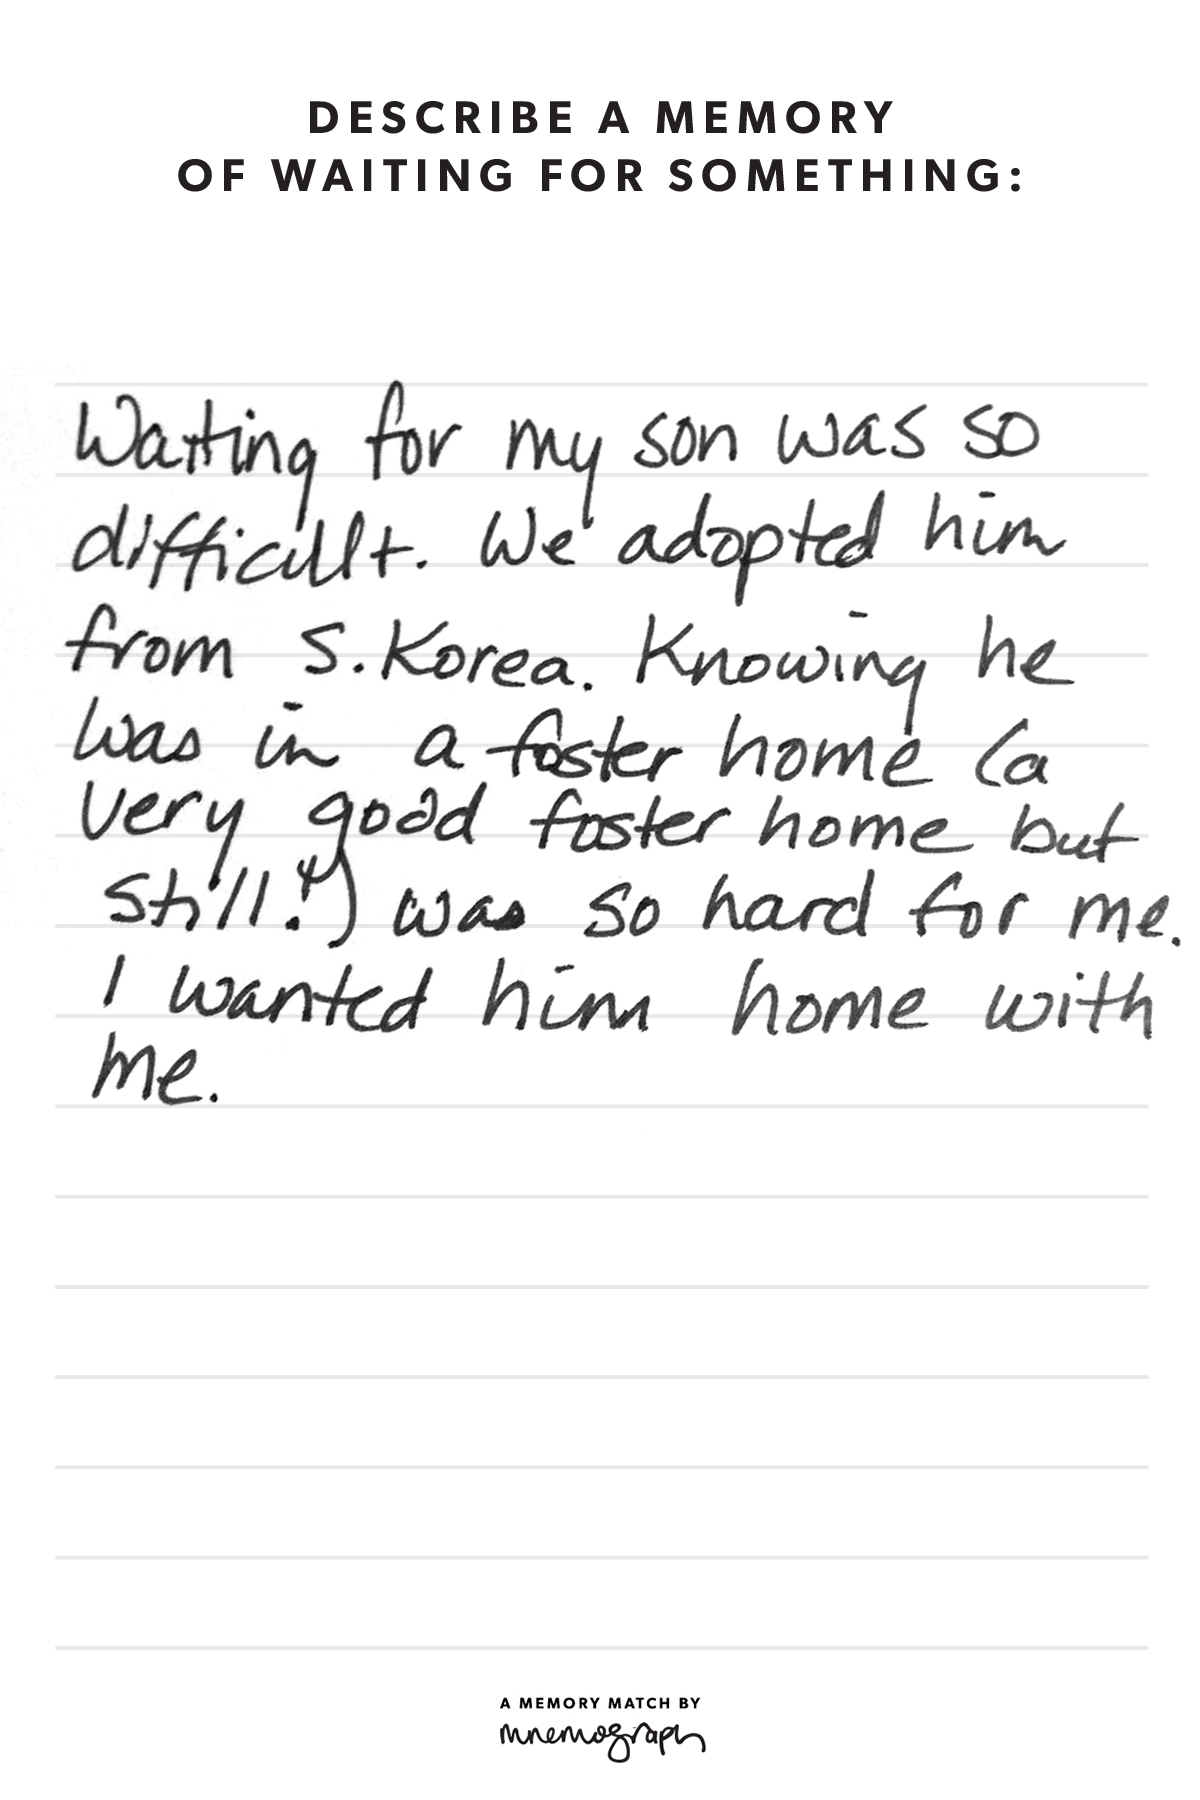 DESCRIBE A MEMORY
OF WAITING FOR SOMETHING:
Waiting for my son was so
difficult. We adopted him
from S. Korea. Knowing he
was in a foster home (a
very good foster home but
still!) was so hard for me.
I wanted him home with
me.
A MEMORY MATCH BY
mnemograph